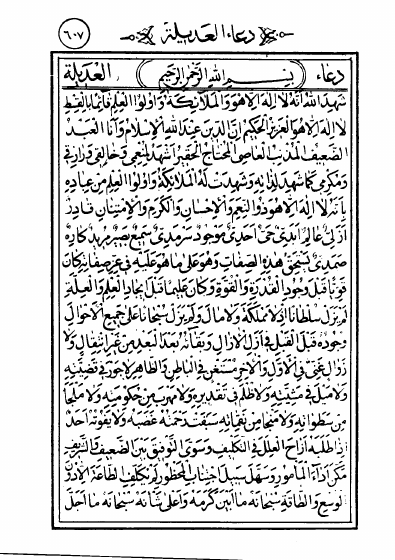 ٦٠٧ دعاء العديلة
دعاء بسم الله الرحمن الرحيم العديلة
شهد الله انه لا اله الا هو والملائكة واولوا العلم قائما بالقسط
لا اله الا هو العزيز الحكيم ان الدين عند الله الاسلام وانا العبد
الضعيف المذنب العاصي المحتاج الحقير اشهد لمنعمي وخالقي ورازقي
ومكرمي كما شهد لذاته وشهدت له الملائكة واولوا العلم من عباده
بانه لا اله الا هو ذو النعم والاحسان والكرم والامتنان قادر
ازلي عالم ابدي حي احدي موجود سرمدي سميع بصير مريد كاره
مدرك صمدي يستحق هذه الصفات وهو على ما هو عليه في عز صفاته كان
قويا قبل وجود القدرة والقوة وكان عليما قبل ايجاد العلم والعلة
لم يزل سلطانا اذ لا مملكة ولا مال ولم يزل سبحانا على جميع الاحوال
وجوده قبل القبل في ازل الازال وبقائه بعد البعد من غير انتقال ولا
زوال غني في الاول والاخر مستغن في الباطن والظاهر لا جور في قضيته
ولا ميل في مشيته ولا ظلم في تقديره ولا مهرب من حكومته ولا ملجأ
من سطواته ولا منجا من نقماته سبقت رحمته غضبه ولا يفوته احد
اذا طلبه ازاح العلل في التكليف وسوى التوفيق بين الضعيف والشريف
مكن اداء المأمور وسهل سبيل اجتناب المحظور لم يكلف الطاعة الا دون
الوسع والطاقة سبحانه ما ابين كرمه واعلى شانه سبحانه ما اجل